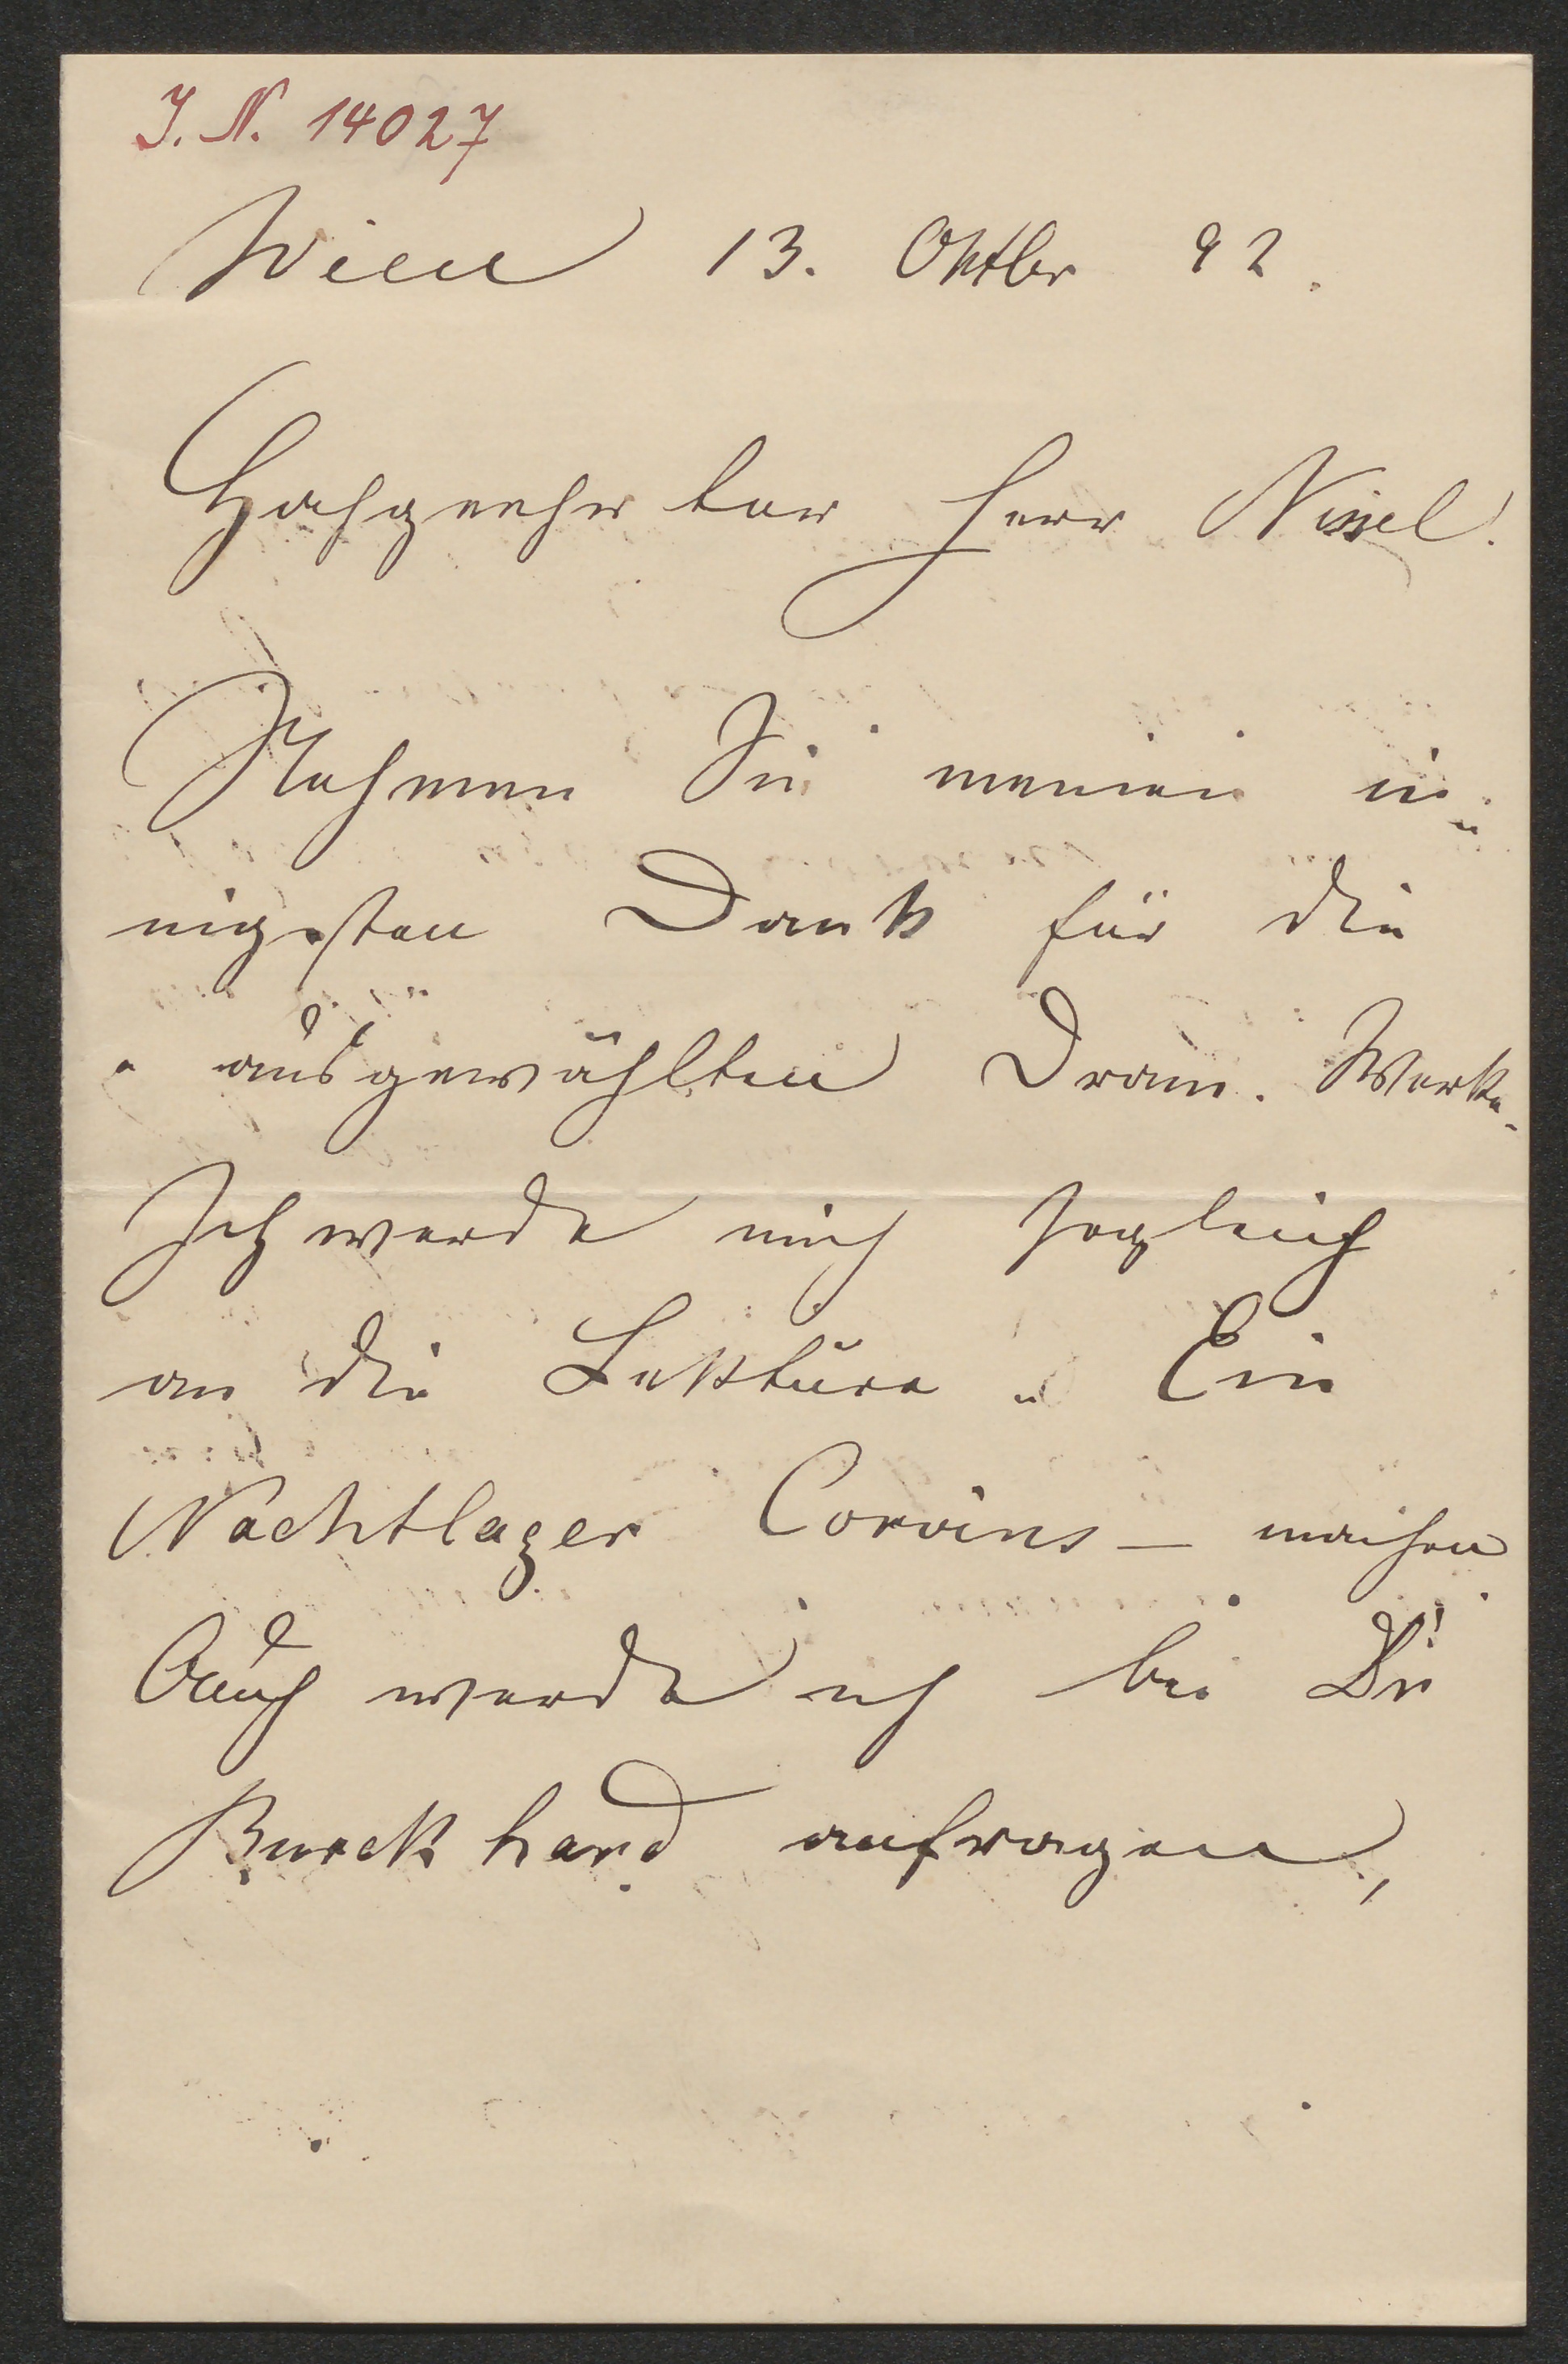 J. N. 14027
Wien 13. Oktber 92.
Hochgeehrter Herr Nissel!
Nehmen Sie meinen in-
nigsten Dank für die
ausgewählten Dram. Werke.
Ich werde mich sogleich
an die Lektüre „Ein
Nachtlager Corvins – machen
Auch werde ich bei Dr
Burckhard anfragen,